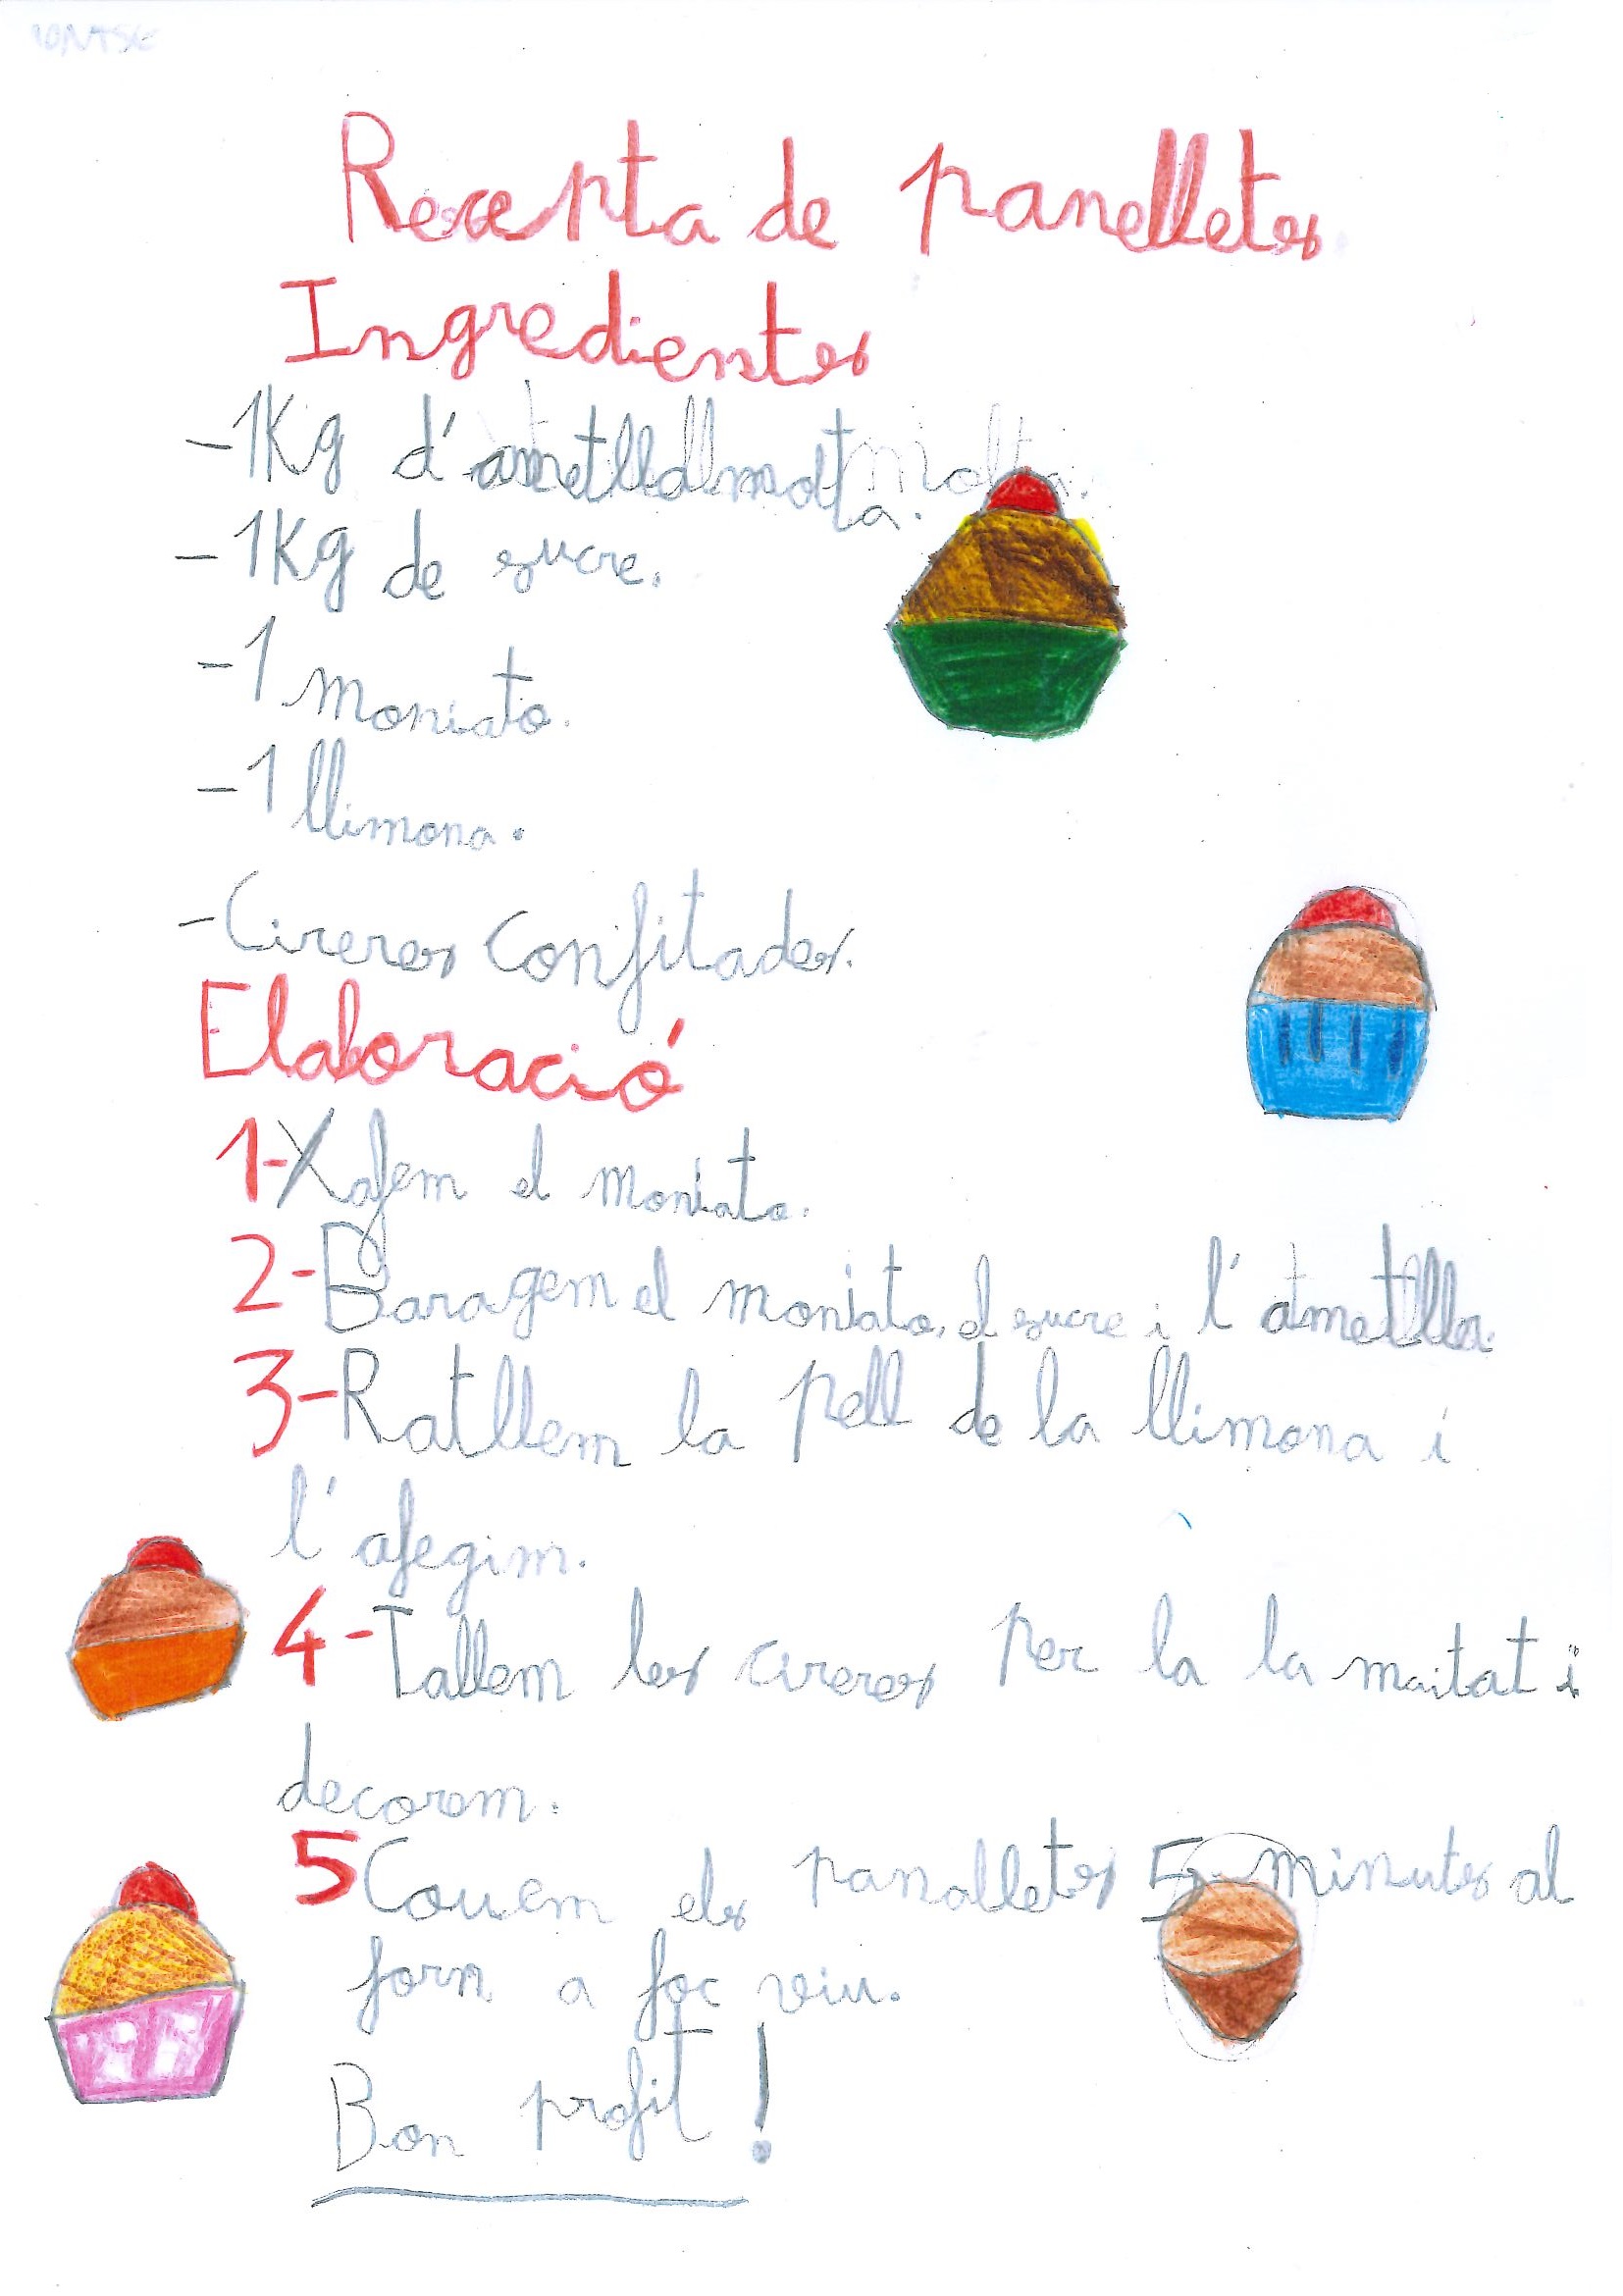 Recepta de panellets
Ingredientes
-1Kg d'ametlla molta.
-1Kg de sucre.
-1 moniato.
-1 llimona.
-Cireres confitades.
Elaboració
1-Xafem el moniato.
2-Baragem el moniato, el sucre i l'ametlla.
3-Ratllem la pell de la llimona i
l'afegim.
4-Tallem les cireres per la la maitat i
decorem.
5 Couem els panallets 5 minuts al
forn a foc viu.
Bon profit!